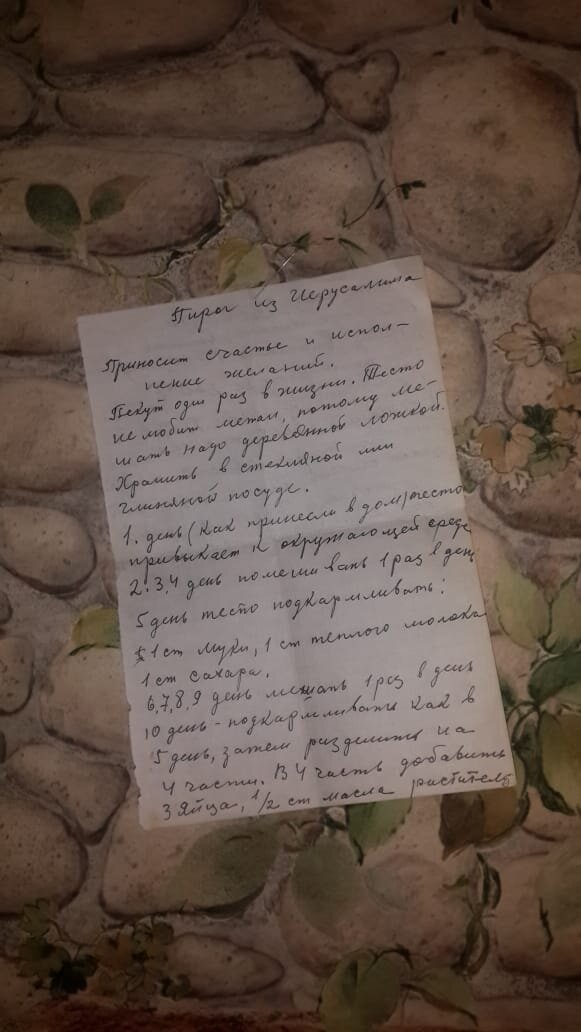 Пирог из Иерусалима
Приносит счастье и испол-
нение желаний.
Пекут один раз в жизни. Тесто
не любит метал, потому ме-
шать надо деревянной ложкой.
Хранить в стекляной или
глиняной посуде.
1. день (как принесли в дом) тесто
привыкает к окружающей среде
2. 3, 4 день помешивать 1 раз в день
5 день тесто подкармливать:
1 ст муки, 1 ст теплого молока
1 ст сахара.
6, 7, 8, 9 день мешать 1 раз в день
10 день - подкармливать как в
5 день, затем разделить на
4 части. В 4 часть добавить
3 яйца, 1/2 ст масла растител